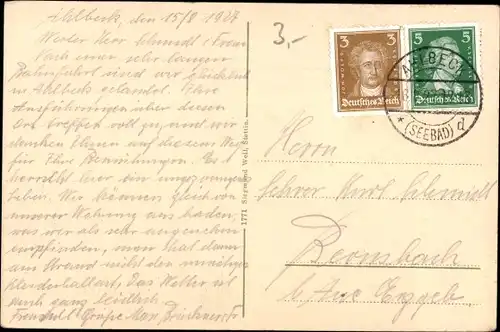 Ahlbeck, den 15/8 1927
Werter Herr Schmidt u. Frau
Nach einer sehr langen
Bahnfahrt sind wir glücklich
in Ahlbeck gelandet. Ihre
Ausführungen über diesen
Ort treffen voll zu, und wir
danken Ihnen auf diesem Wege
für Ihre Bemühungen. Es
herrscht hier ein ungezwungenes
Leben. Wir können gleich von
unserer Wohnung aus baden,
was wir als sehr angenehm
empfinden, man hat dann
am Strand nicht den unnötigen
Kleiderballast. Das Wetter ist
auch ganz leidlich.
Freundl. Grüße Max
3,-
3 3
Deutsches Reich
5 5
Deutsches Reich
AHLBECK
* (SEEBAD) d
1771 Siegmund Weil, Stettin.
Herrn
Lehrer Karl Schmidt
Bernsbach
b/ Aue Erzgeb.